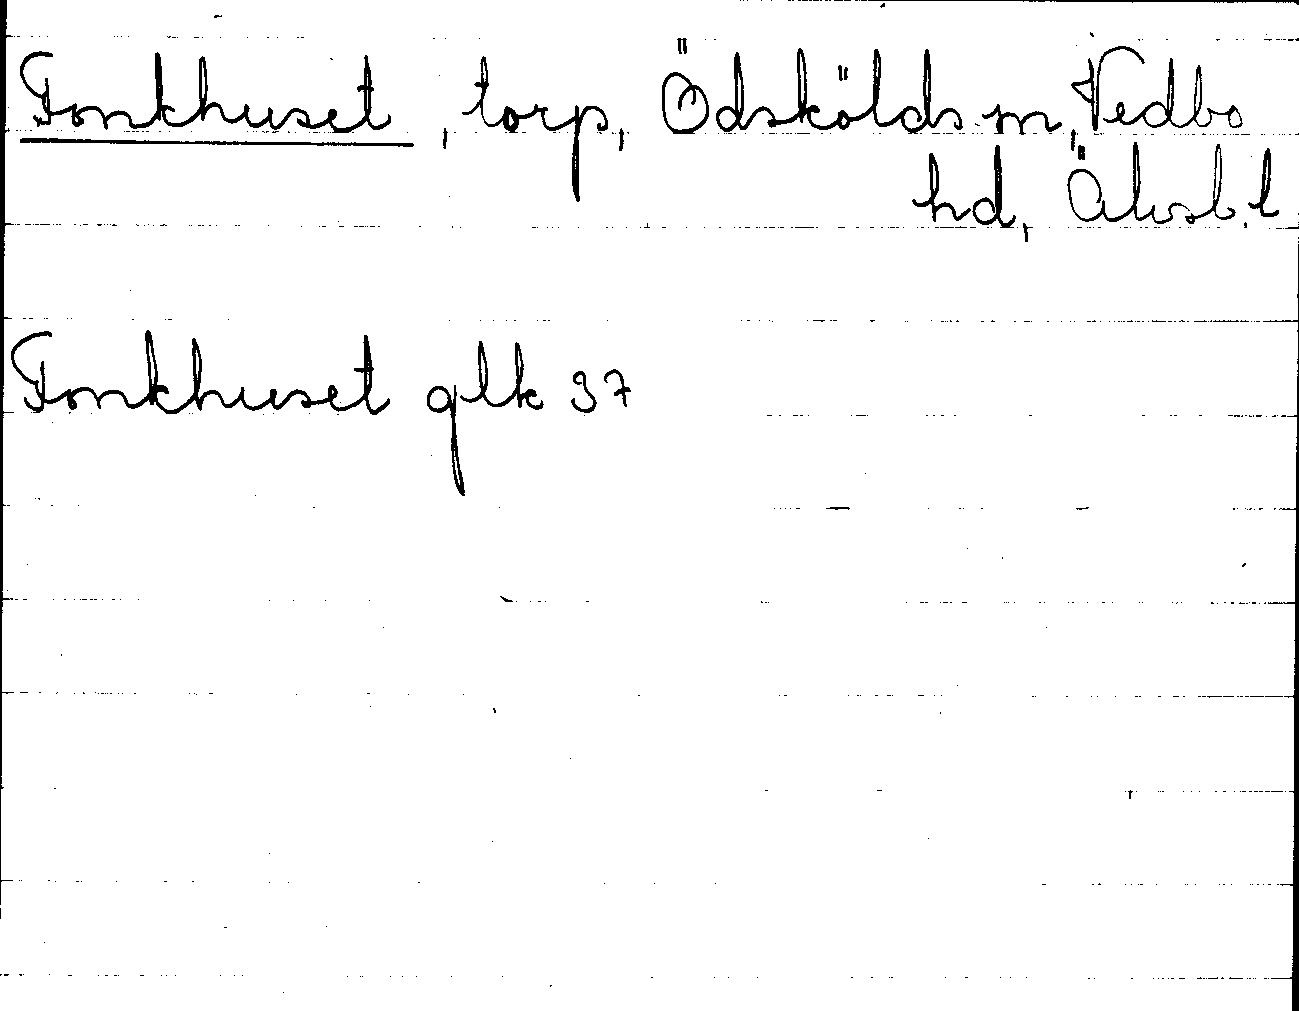 Fonkhuset, torp, Ödskölds sn, Vedbo
hd, Älvsb. l
Fonkhuset glk 37